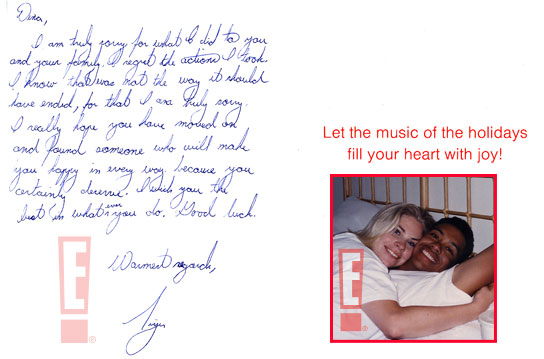 Dina,
I am truly sorry for what I did to you
and your family. I regret the actions I took.
I know that was not the way it should
have ended, for that I am truly sorry.
I really hope you have moved on
and found someone who will make
you happy in every way because you
certainly deserve. I wish you the
best in what ever you do. Good luck.
Warmest regards,
Tiger
Let the music of the holidays
fill your heart with joy!
E!
E!